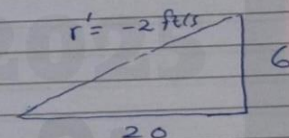 r' = -2 ft/s
6
20